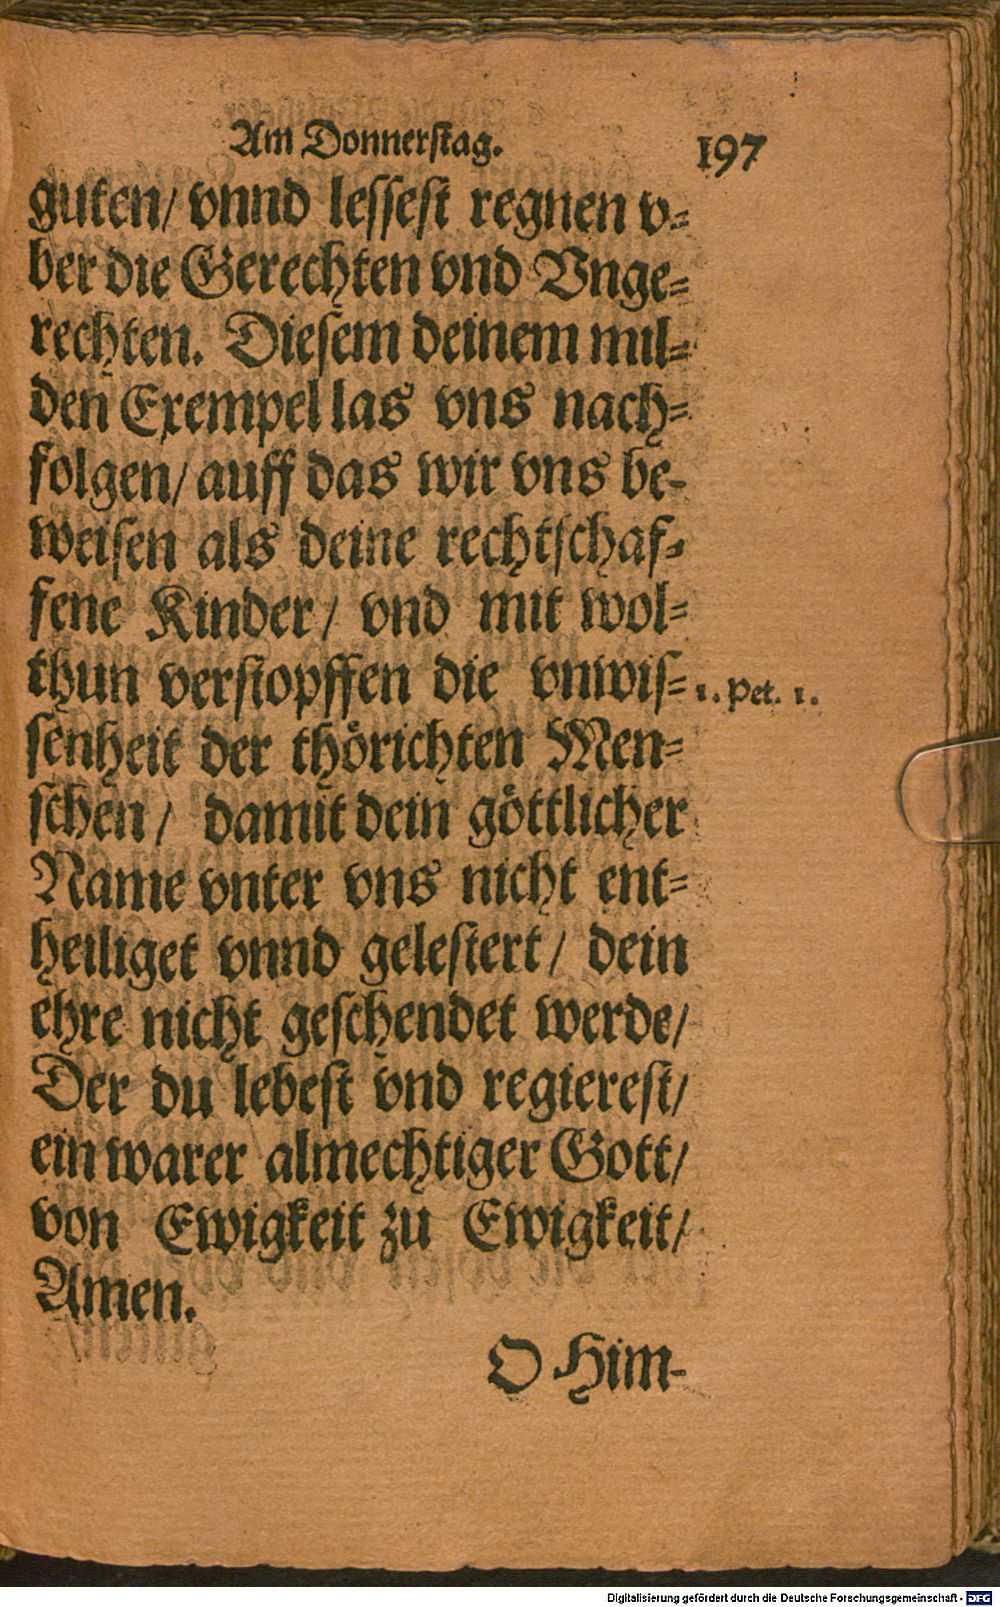 Am Donnerstag. 197
guten/ vnnd lessest regnen v-
ber die Gerechten vnd Vnge-
rechten. Diesem deinem mil-
den Exempel las vns nach-
folgen/ auff das wir vns be-
weisen als deine rechtschaf-
fene Kinder/ vnd mit wol-
thun verstopffen die vnwis-
1. Pet. 1.
senheit der thörichten Men-
schen/ damit dein göttlicher
Name vnter vns nicht ent-
heiliget vnnd gelestert/ dein
ehre nicht geschendet werde/
Der du lebest vnd regierest/
ein warer almechtiger Gott/
von Ewigkeit zu Ewigkeit/
Amen.
O Him-
Digitalisierung gefördert durch die Deutsche Forschungsgemeinschaft - DFG